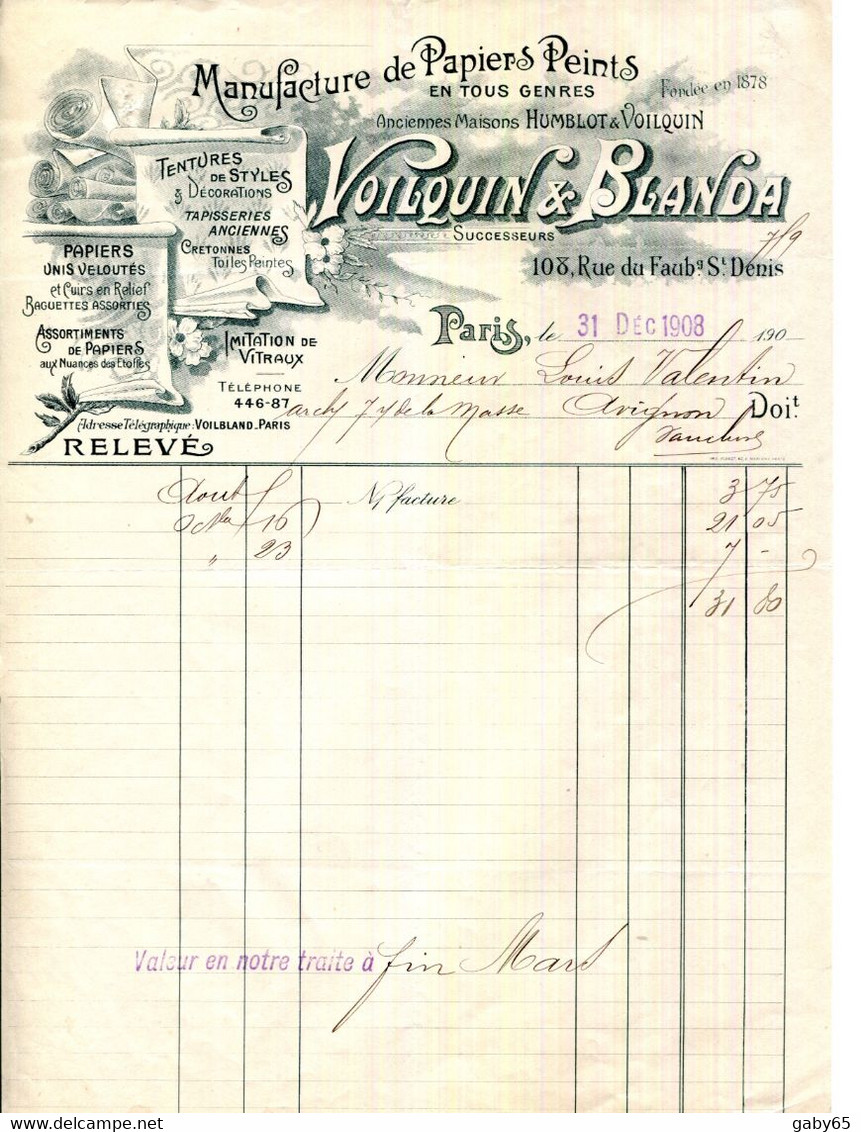 Manufacture de Papiers Peints
EN TOUS GENRES
Fondée en 1878
Anciennes Maisons HUMBLOT & VOILQUIN
VOILQUIN & BLANDA
SUCCESSEURS
7/9
108, Rue du Faubg St. Denis
TENTURES
DE STYLES
& DÉCORATIONS
TAPISSERIES
ANCIENNES
CRETONNES
Toiles Peintes
PAPIERS
UNIS VELOUTÉS
et Cuirs en Relief
BAGUETTES ASSORTIES
ASSORTIMENTS
DE PAPIERS
aux Nuances des Etoffes
IMITATION DE
VITRAUX
TÉLÉPHONE
446-87
Adresse Télégraphique: VOILBLAND_PARIS
RELEVÉ
Paris, le 31 DÉC 1908 190
Monsieur Louis Valentin
de la Masse Avignon Doit.
Vaucluse
Aout N/ facture 3 75
16 21 05
" 23 7 -
31 80
Valeur en notre traite à fin Mars
Delcampe.net
gaby65